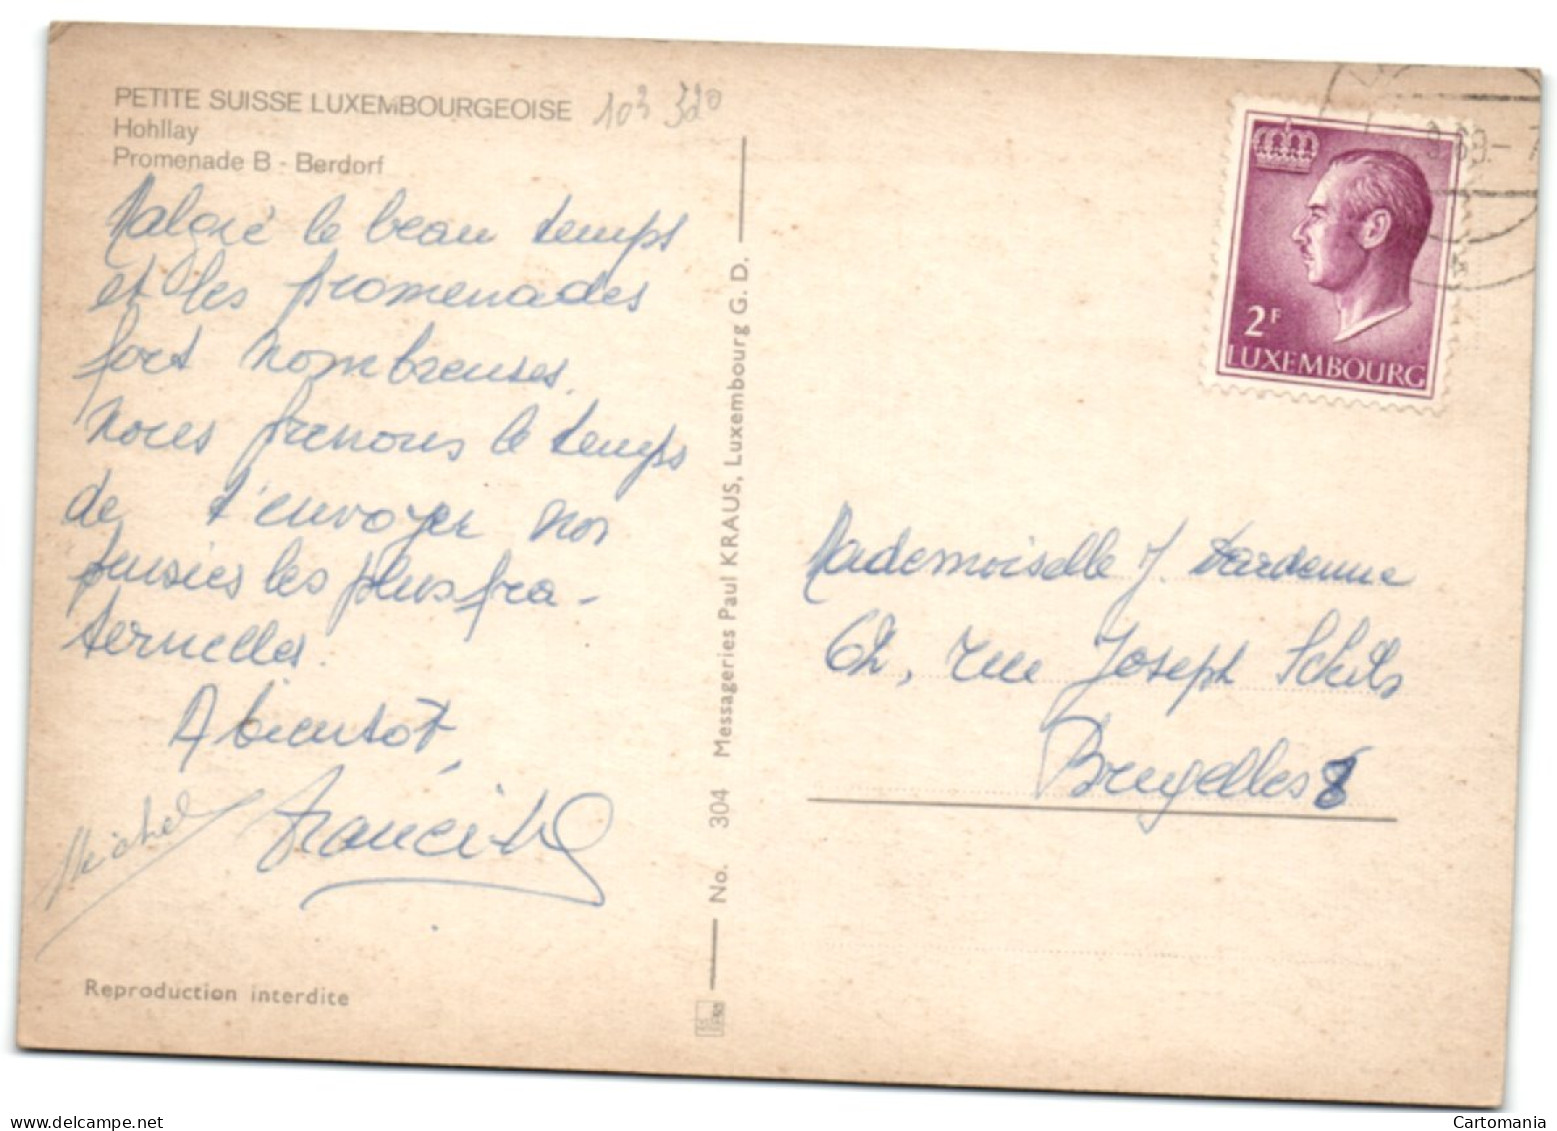 PETITE SUISSE LUXEMBOURGEOISE
103 320
Hohllay
Promenade B - Berdorf
Malgré le beau temps
et les promenades
fort nombreuses,
nous prenons le temps
de t'envoyer nos
pensées les plus fra-
ternelles.
A bientôt,
Michel
Reproduction interdite
No. 304 Messageries Paul KRAUS, Luxembourg G. D.
2F
LUXEMBOURG
69.-7
Mademoiselle J. Dardenne
62, rue Joseph
Bruxelles 8
Cartomania